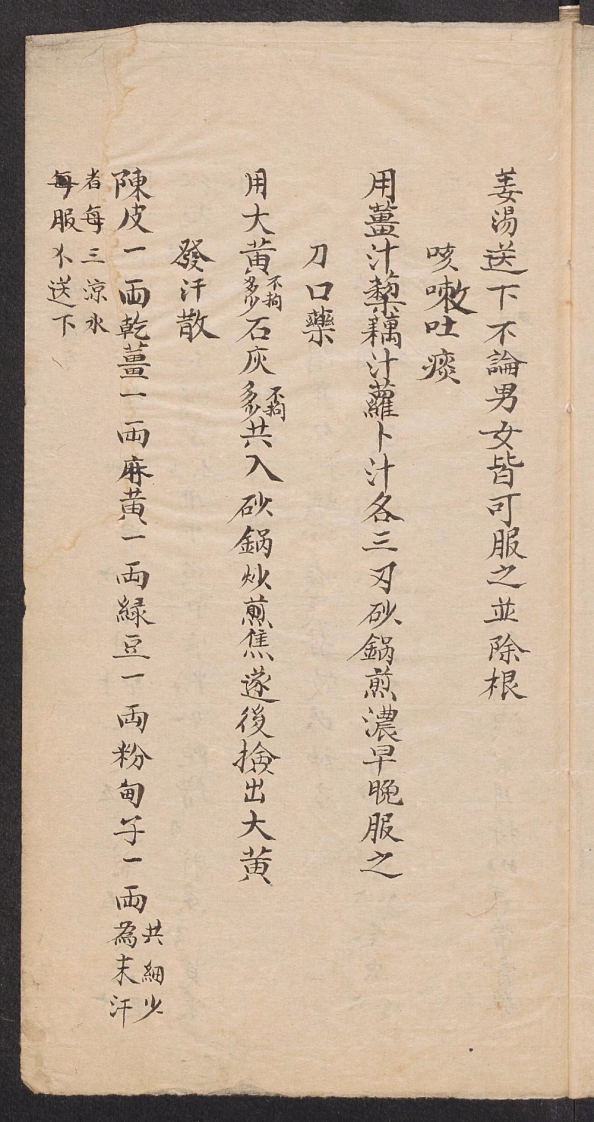 姜湯送下不論男女皆可服之並除根
咳嗽吐痰
用薑汁藕汁蘿卜汁各三刃砂鍋煎濃早晚服之
刀口藥
用大黃不拘多少石灰不拘多少共入砂鍋炒煎焦遂後撿出大黃
發汗散
陳皮一兩乾薑一兩麻黃一兩緑豆一兩粉甸子一兩共細少為末汗
者每三涼水
每服送下